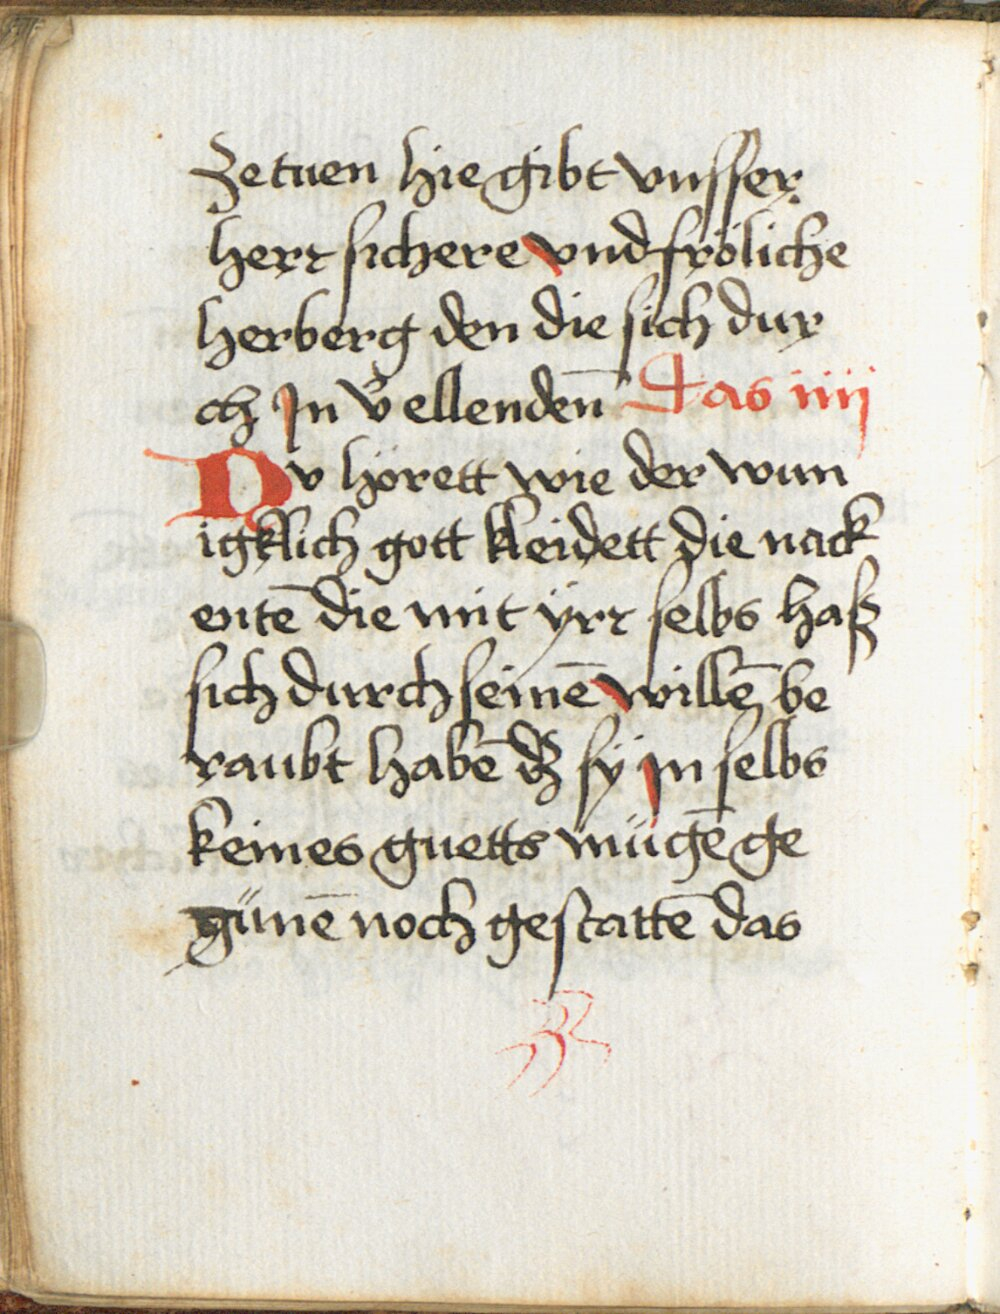 Zetuen hie gibt vnsser
herr sichere vnd fröliche
herberg den die sich dur
ch In v̾ellenden̄ Das iiij
Nv hörett wie der wun
igklich gott kleidett die nack
entē die mit ÿrr selbs haß
sich durch seinē willē be
raubt habē dz sÿ jn selbs
keines guetts mügē ge
günē noch gestattē das